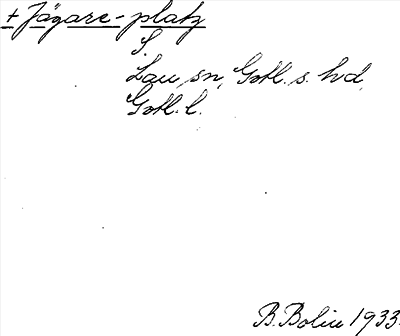 + Jägare-platz
S.
Lau sn, Gotl. s. hd,
Gotl. l.
B. Bolin 1933.